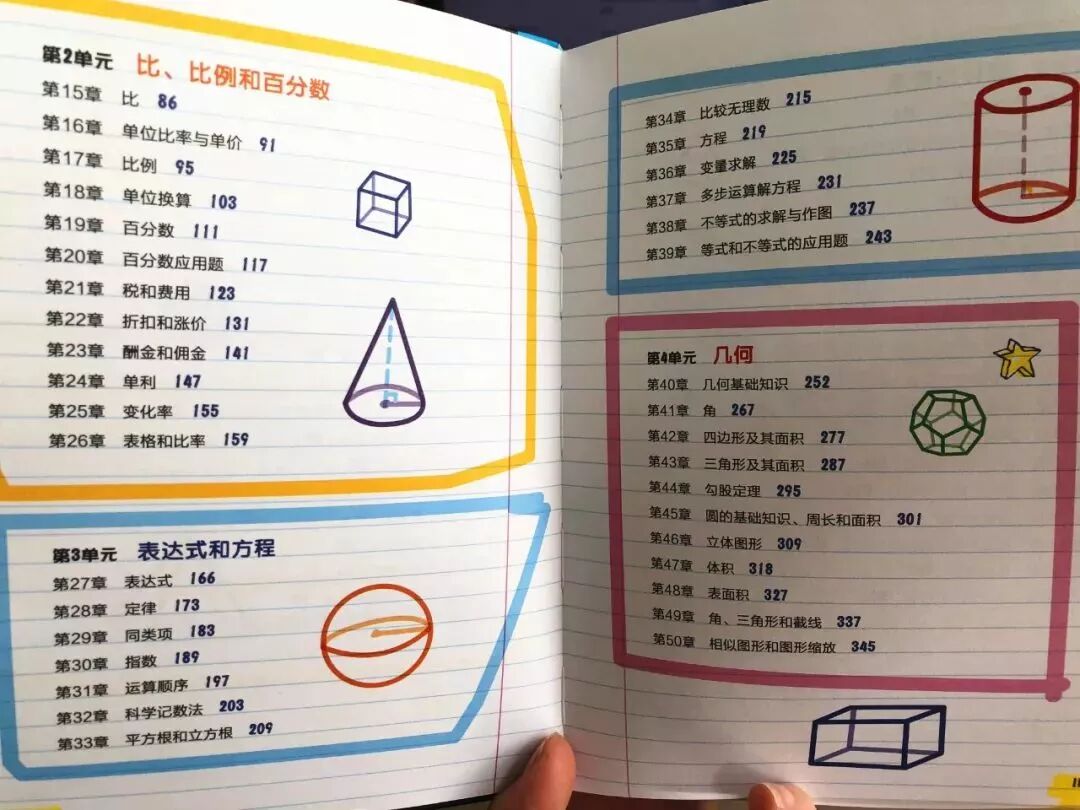 第2单元 比、比例和百分数
第15章 比 86
第16章 单位比率与单价 91
第17章 比例 95
第18章 单位换算 103
第19章 百分数 111
第20章 百分数应用题 117
第21章 税和费用 123
第22章 折扣和涨价 131
第23章 酬金和佣金 141
第24章 单利 147
第25章 变化率 155
第26章 表格和比率 159
第3单元 表达式和方程
第27章 表达式 166
第28章 定律 173
第29章 同类项 183
第30章 指数 189
第31章 运算顺序 197
第32章 科学记数法 203
第33章 平方根和立方根 209
第34章 比较无理数 215
第35章 方程 219
第36章 变量求解 225
第37章 多步运算解方程 231
第38章 不等式的求解与作图 237
第39章 等式和不等式的应用题 243
第4单元 几何
第40章 几何基础知识 252
第41章 角 267
第42章 四边形及其面积 277
第43章 三角形及其面积 287
第44章 勾股定理 295
第45章 圆的基础知识、周长和面积 301
第46章 立体图形 309
第47章 体积 318
第48章 表面积 327
第49章 角、三角形和截线 337
第50章 相似图形和图形缩放 345